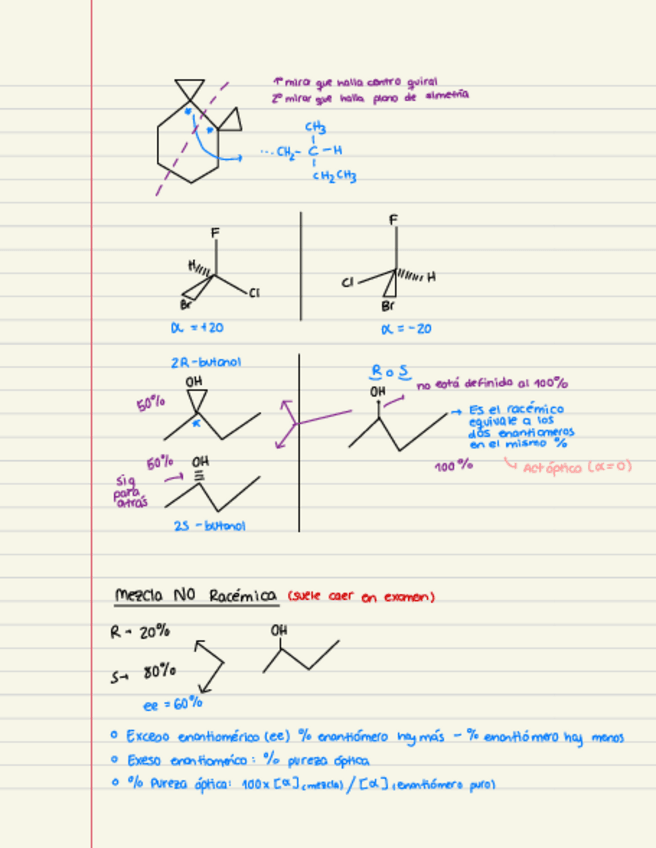 1º mirar que halla centro quiral
2º mirar que halla plano de simetría
CH3
...CH2- C -H
CH2CH3
F
H
Cl
Br
α = +20
F
Cl
H
Br
α = -20
2R-butanol
OH
50%
50%
OH
sig
para
atrás
2S -butanol
R o S
OH
no está definido al 100%
→ Es el racémico
equivale a los
dos enantiomeros
en el mismo %
100%
Act óptica (α=0)
Mezcla NO Racémica (suele caer en examen)
R → 20%
S → 80%
ee = 60%
OH
Exceso enantiomérico (ee) % enantiómero hay más - % enantiómero hay menos
Exeso enantiomérico: % pureza óptica
% Pureza óptica: 100x [α] (mezcla) / [α] (enantiómero puro)